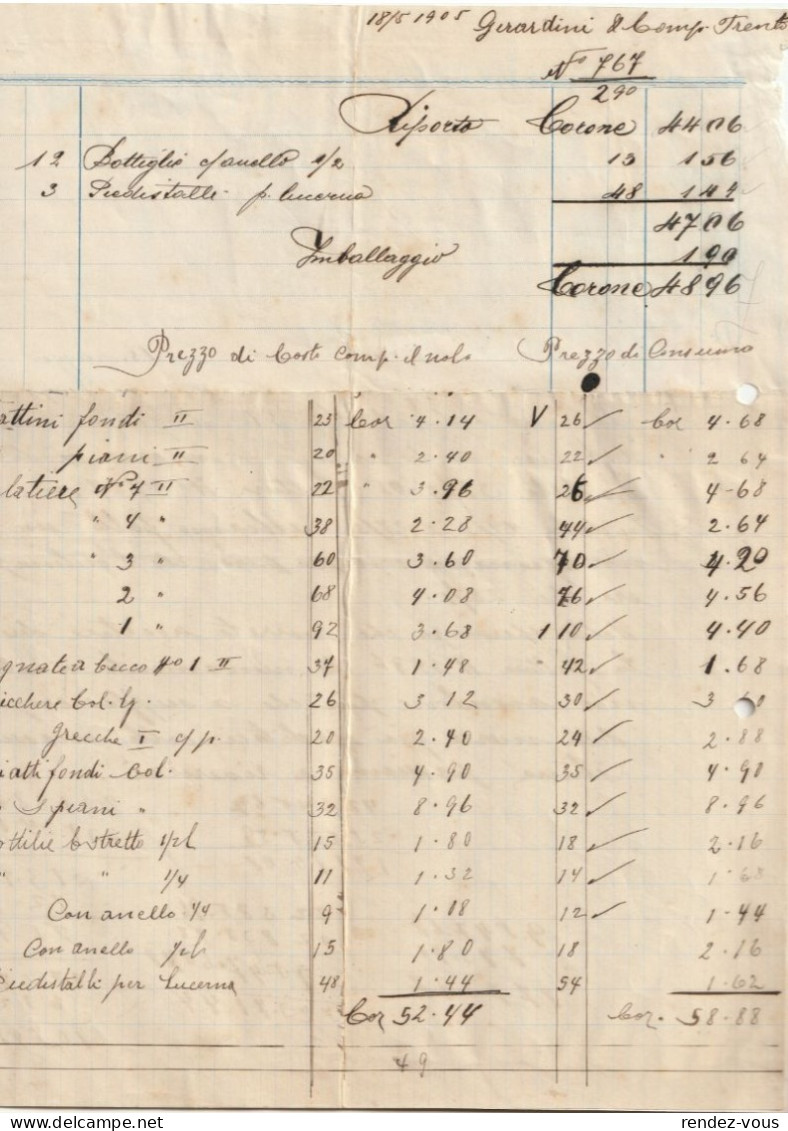 18/5 1905 Girardini & Comp. Trento
No 767
290
Riporto Corone 4406
12 Bottiglie c/anello 1/2 13 156
3 Piedistalli p. lucerna 48 144
4706
Imballaggio 190
Corone 4896
Prezzo di Costo comp. il nolo Prezzo di Consumo
attini fondi II 23 Cor 4.14 V 26 Cor 4.68
piani II 20 " 2.40 22 " 2 64
latiere No 4 II 22 " 3.96 26 4-68
" 4 " 38 2.28 44 2.64
" 3 " 60 3.60 70 4.20
2 " 68 4.08 76 4.56
1 " 92 3.68 110 4.40
gnate a becco No 1 II 37 1.48 42 1.68
icchere Col. 26 3 12 30 3 60
Grecche I c/p. 20 2.40 24 2.88
iatti fondi Col. 35 4.90 35 4.90
piani " 32 8.96 32 8.96
ottilie Cstretto 15 1.80 18 2.16
" " 1/4 11 1.32 14 1.68
Con anello 1/4 9 1.08 12 1-44
Con anello 15 1.80 18 2.16
Piedistalli per Lucerna 48 1.44 54 1.62
Cor 52.44 Cor. 58.88
49
rendez-vous